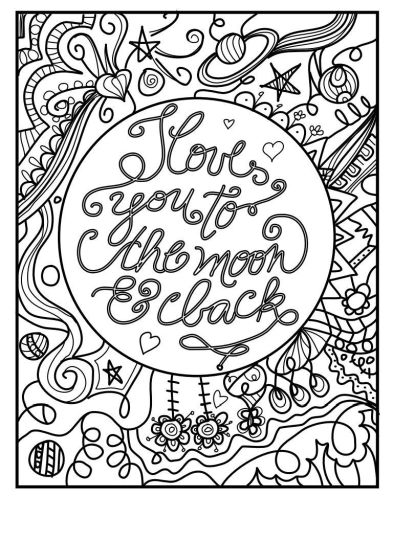 I love
you to
the moon
& back